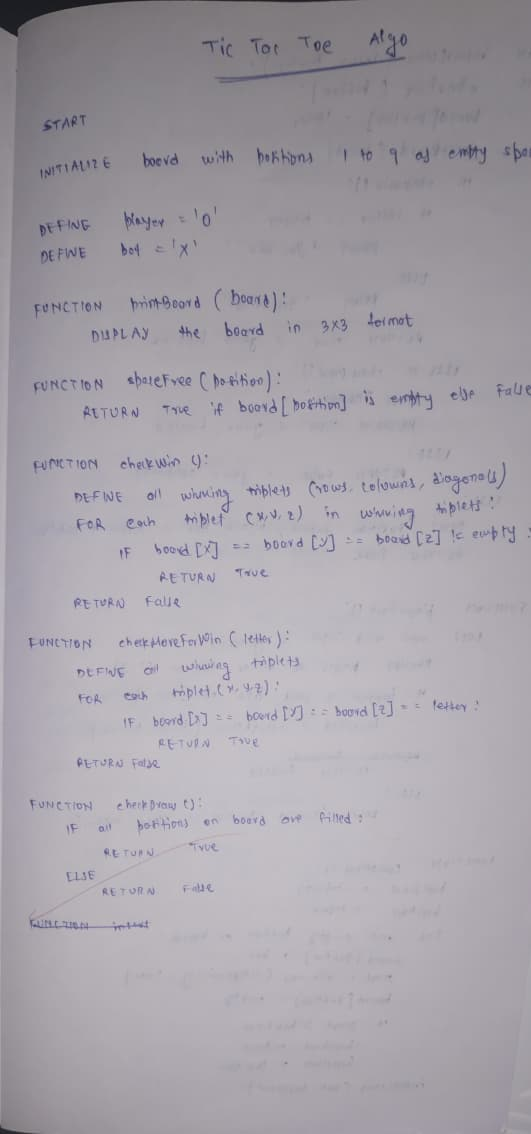 Tic Tac Toe Algo
START
INITIALIZE board with positions 1 to 9 as empty
DEFINE player = 'O'
DEFINE bot = 'X'
FUNCTION printBoard (board):
DISPLAY the board in 3x3 format
FUNCTION spaceFree (position):
RETURN True if board[position] is empty else False
FUNCTION checkWin ():
DEFINE all winning triplets (rows, columns, diagonals)
FOR each triplet (x,y,z) in winning triplets:
IF board[x] == board[y] == board[z] != empty:
RETURN True
RETURN False
FUNCTION checkMoveForWin (letter):
DEFINE all winning triplets
FOR each triplet (x,y,z):
IF board[x] == board[y] == board[z] == letter:
RETURN True
RETURN False
FUNCTION checkDraw ():
IF all positions on board are filled:
RETURN True
ELSE
RETURN False
FUNCTION